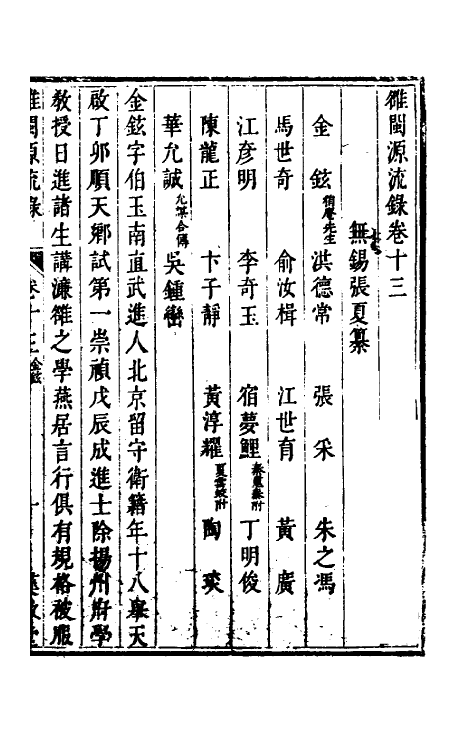 雒閩源流錄卷十三
無錫張夏纂
金鉉 洪德常 張采 朱之馮
馬世奇 俞汝楫 江世育 黃廣
江彥明 李奇玉 宿夢鯉 丁明俊
陳龍正 卞子靜 黃淳耀 陶琰
華允誠 吳鍾巒
金鉉字伯玉南直武進人北京留守衛籍年十八舉天
啟丁卯順天鄉試第一崇禎戊辰成進士除揚州府學
教授日進諸生講濂雒之學燕居言行俱有規格被服
雒閩源流錄 卷十三